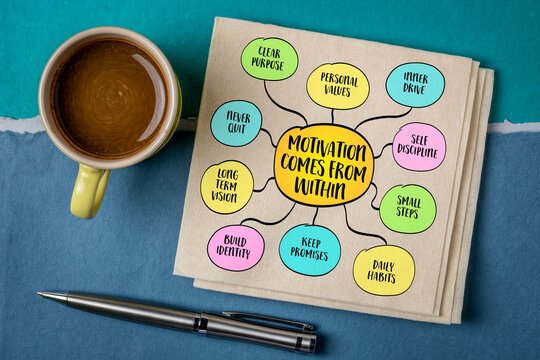 CLEAR
PURPOSE
PERSONAL
VALUES
INNER
DRIVE
NEVER
QUIT
MOTIVATION
COMES FROM
WITHIN
SELF
DISCIPLINE
LONG
TERM
VISION
SMALL
STEPS
BUILD
IDENTITY
KEEP
PROMISES
DAILY
HABITS